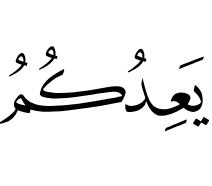 يَعِدكُمُ